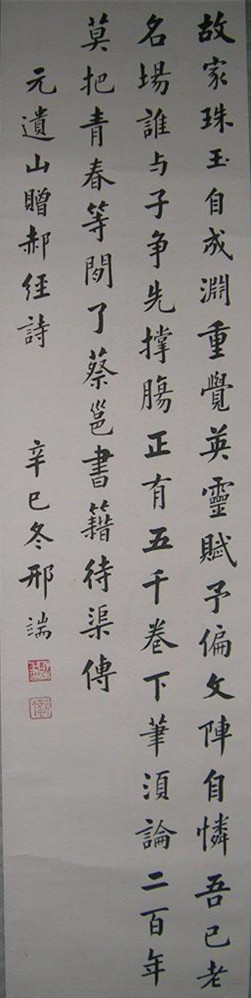 故家珠玉自成淵重覺英靈賦予偏文陣自憐吾已老
名場誰与子争先撑腸正有五千卷下筆須論二百年
莫把青春等閒了蔡邕書籍待渠傳
元遺山贈郝経詩 辛巳冬邢端